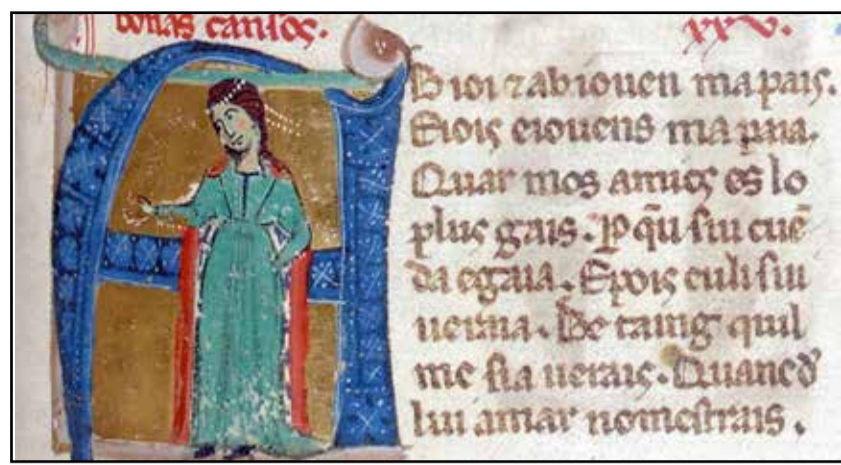 bonas cansos.
xxv.
B ioi ⁊ab iouen mapais.
E iois eiouens ma paia.
Quar mos amics es lo
plus gais. ꝑ qͥu sui cuẽ
da egaia. E pois eu li sui
ueraia. Be taing quil
me sia uerais. Quanc ď
lui amar nomestrais.